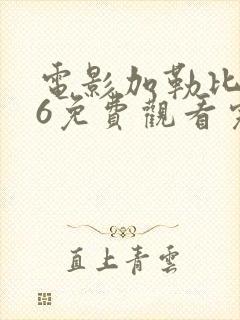 電影加勒比
6免費觀看
直上青雲